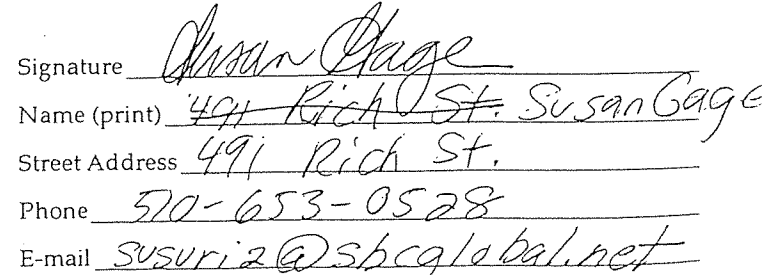 Signature Susan Gage
Name (print) 491 Rich St. Susan Gage
Street Address 491 Rich St.
Phone 510-653-0528
E-mail susuri2@sbcglobal.net